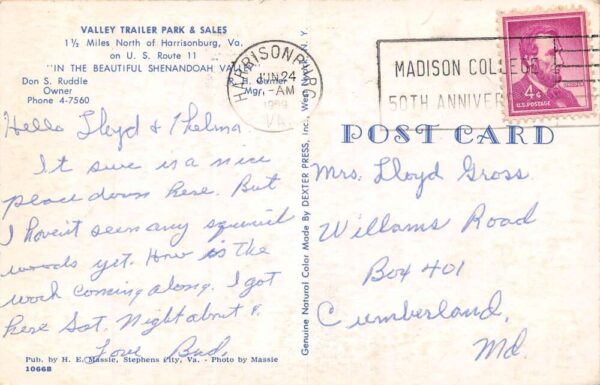 VALLEY TRAILER PARK & SALES
1½ Miles North of Harrisonburg, Va.
on U. S. Route 11
"IN THE BEAUTIFUL SHENANDOAH VALLEY"
Don S. Ruddle
Owner
Phone 4-7560
Mgr.
Hello Lloyd & Thelma
It sure is a nice
place down here. But
I haven't seen any squirrel
woods yet. How is the
work coming along. I got
here Sat. Night about 9.
Love Bud.
Pub. by H. E. Massie, Stephens City, Va. - Photo by Massie
10668
Genuine Natural Color Made By DEXTER PRESS, Inc., West Nyack, N. Y.
HARRISONBURG
JUN 24
-AM
VA.
MADISON COLLEGE
50TH ANNIVER
4¢
U.S. POSTAGE
POST CARD
Mrs. Lloyd Gross
Willams Road
Box 401
Cumberland,
Md.